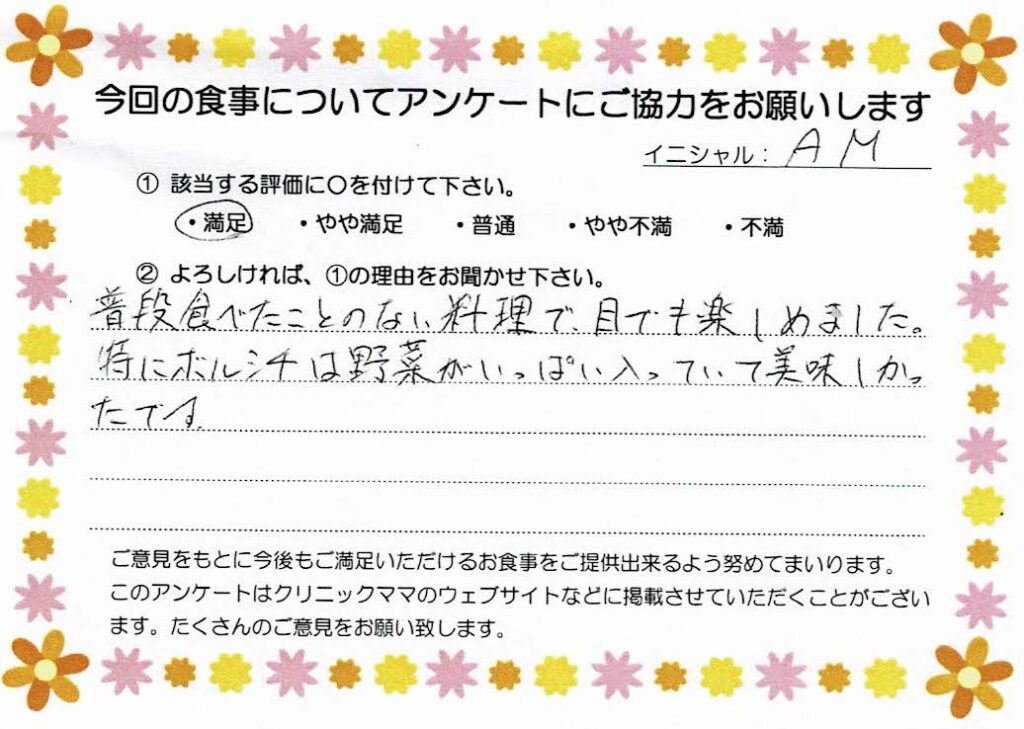 今回の食事についてアンケートにご協力をお願いします
イニシャル： A M
① 該当する評価に〇を付けて下さい。
・満足 ・やや満足 ・普通 ・やや不満 ・不満
② よろしければ、①の理由をお聞かせ下さい。
普段食べたことのない料理で、目でも楽しめました。
特にボルシチは野菜がいっぱい入っていて美味しかっ
たです。
ご意見をもとに今後もご満足いただけるお食事をご提供出来るよう努めてまいります。
このアンケートはクリニックママのウェブサイトなどに掲載させていただくことがござい
ます。たくさんのご意見をお願い致します。